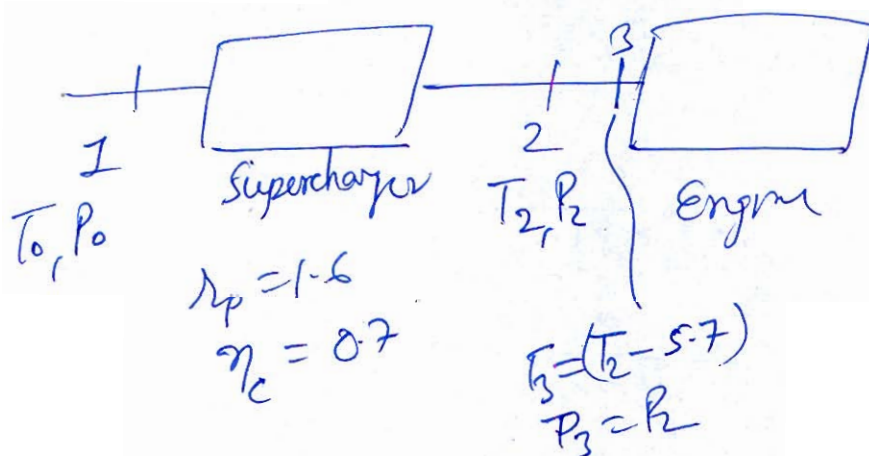 3
1
2
Supercharger
T₀, P₀
T₂, P₂
Engine
r_p = 1.6
η_c = 0.7
T₃ = (T₂ - 5.7)
P₃ = P₂